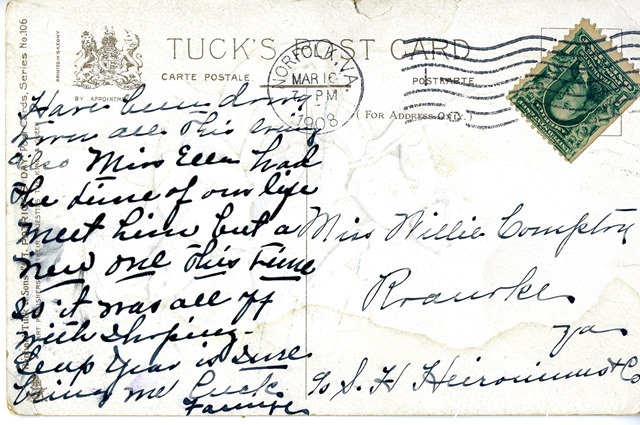 TUCK'S POST CARD
CARTE POSTALE
POSTKARTE
(FOR ADDRESS ONLY.)
BY APPOINTMENT
PRINTED IN SAXONY
Series No. 106
NORFOLK, VA.
MAR 16
7 - PM
1908
Have been down
town all this evng
also Miss Ellen had
the time of our life
meet him but a
new one this time
so it was all off
with shoping.
Leap Year is sure
bring me luck
Miss Willie Compton
Roanoke
Va
c/o S. H Heironimus & Co